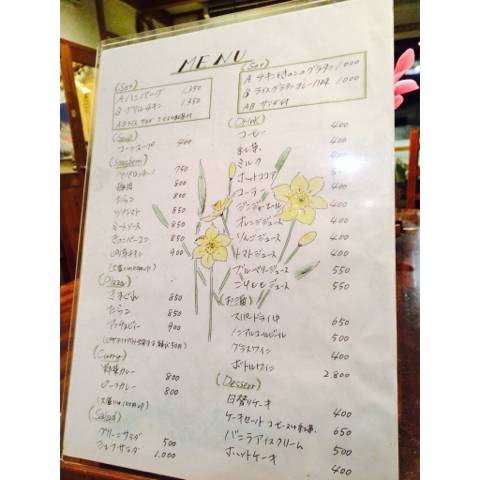 MENU
(Set)
A ハンバーグ 1.350
B グリルチキン 1.350
(Soup)
コーンスープ 400
750
800
たらこ 800
ツナトマト 850
ミートソース 850
850
900
(Pizza)
850
たらこ 850
アンチョビー 900
(Curry)
野菜カレー 800
ビーフカレー 800
(Salad)
グリーンサラダ 500
シェフサラダ 1.000
(Set)
A チキンときのこのグラタン 1.000
B ライスグラタンカレー風味 1.000
AB サラダ付
(Drink)
コーヒー 400
紅茶 400
ミルク 400
ホットココア
コーラ
ジンジャーエール
オレンジジュース 400
りんごジュース 400
トマトジュース 400
ブルーベリージュース 550
550
(お酒)
スーパードライ中 650
ノンアルコールビール 500
グラスワイン 400
ボトルワイン 2.800
(Dessert)
日替りケーキ 400
ケーキセット コーヒー又は紅茶 650
バニラアイスクリーム 500
ホットケーキ 400